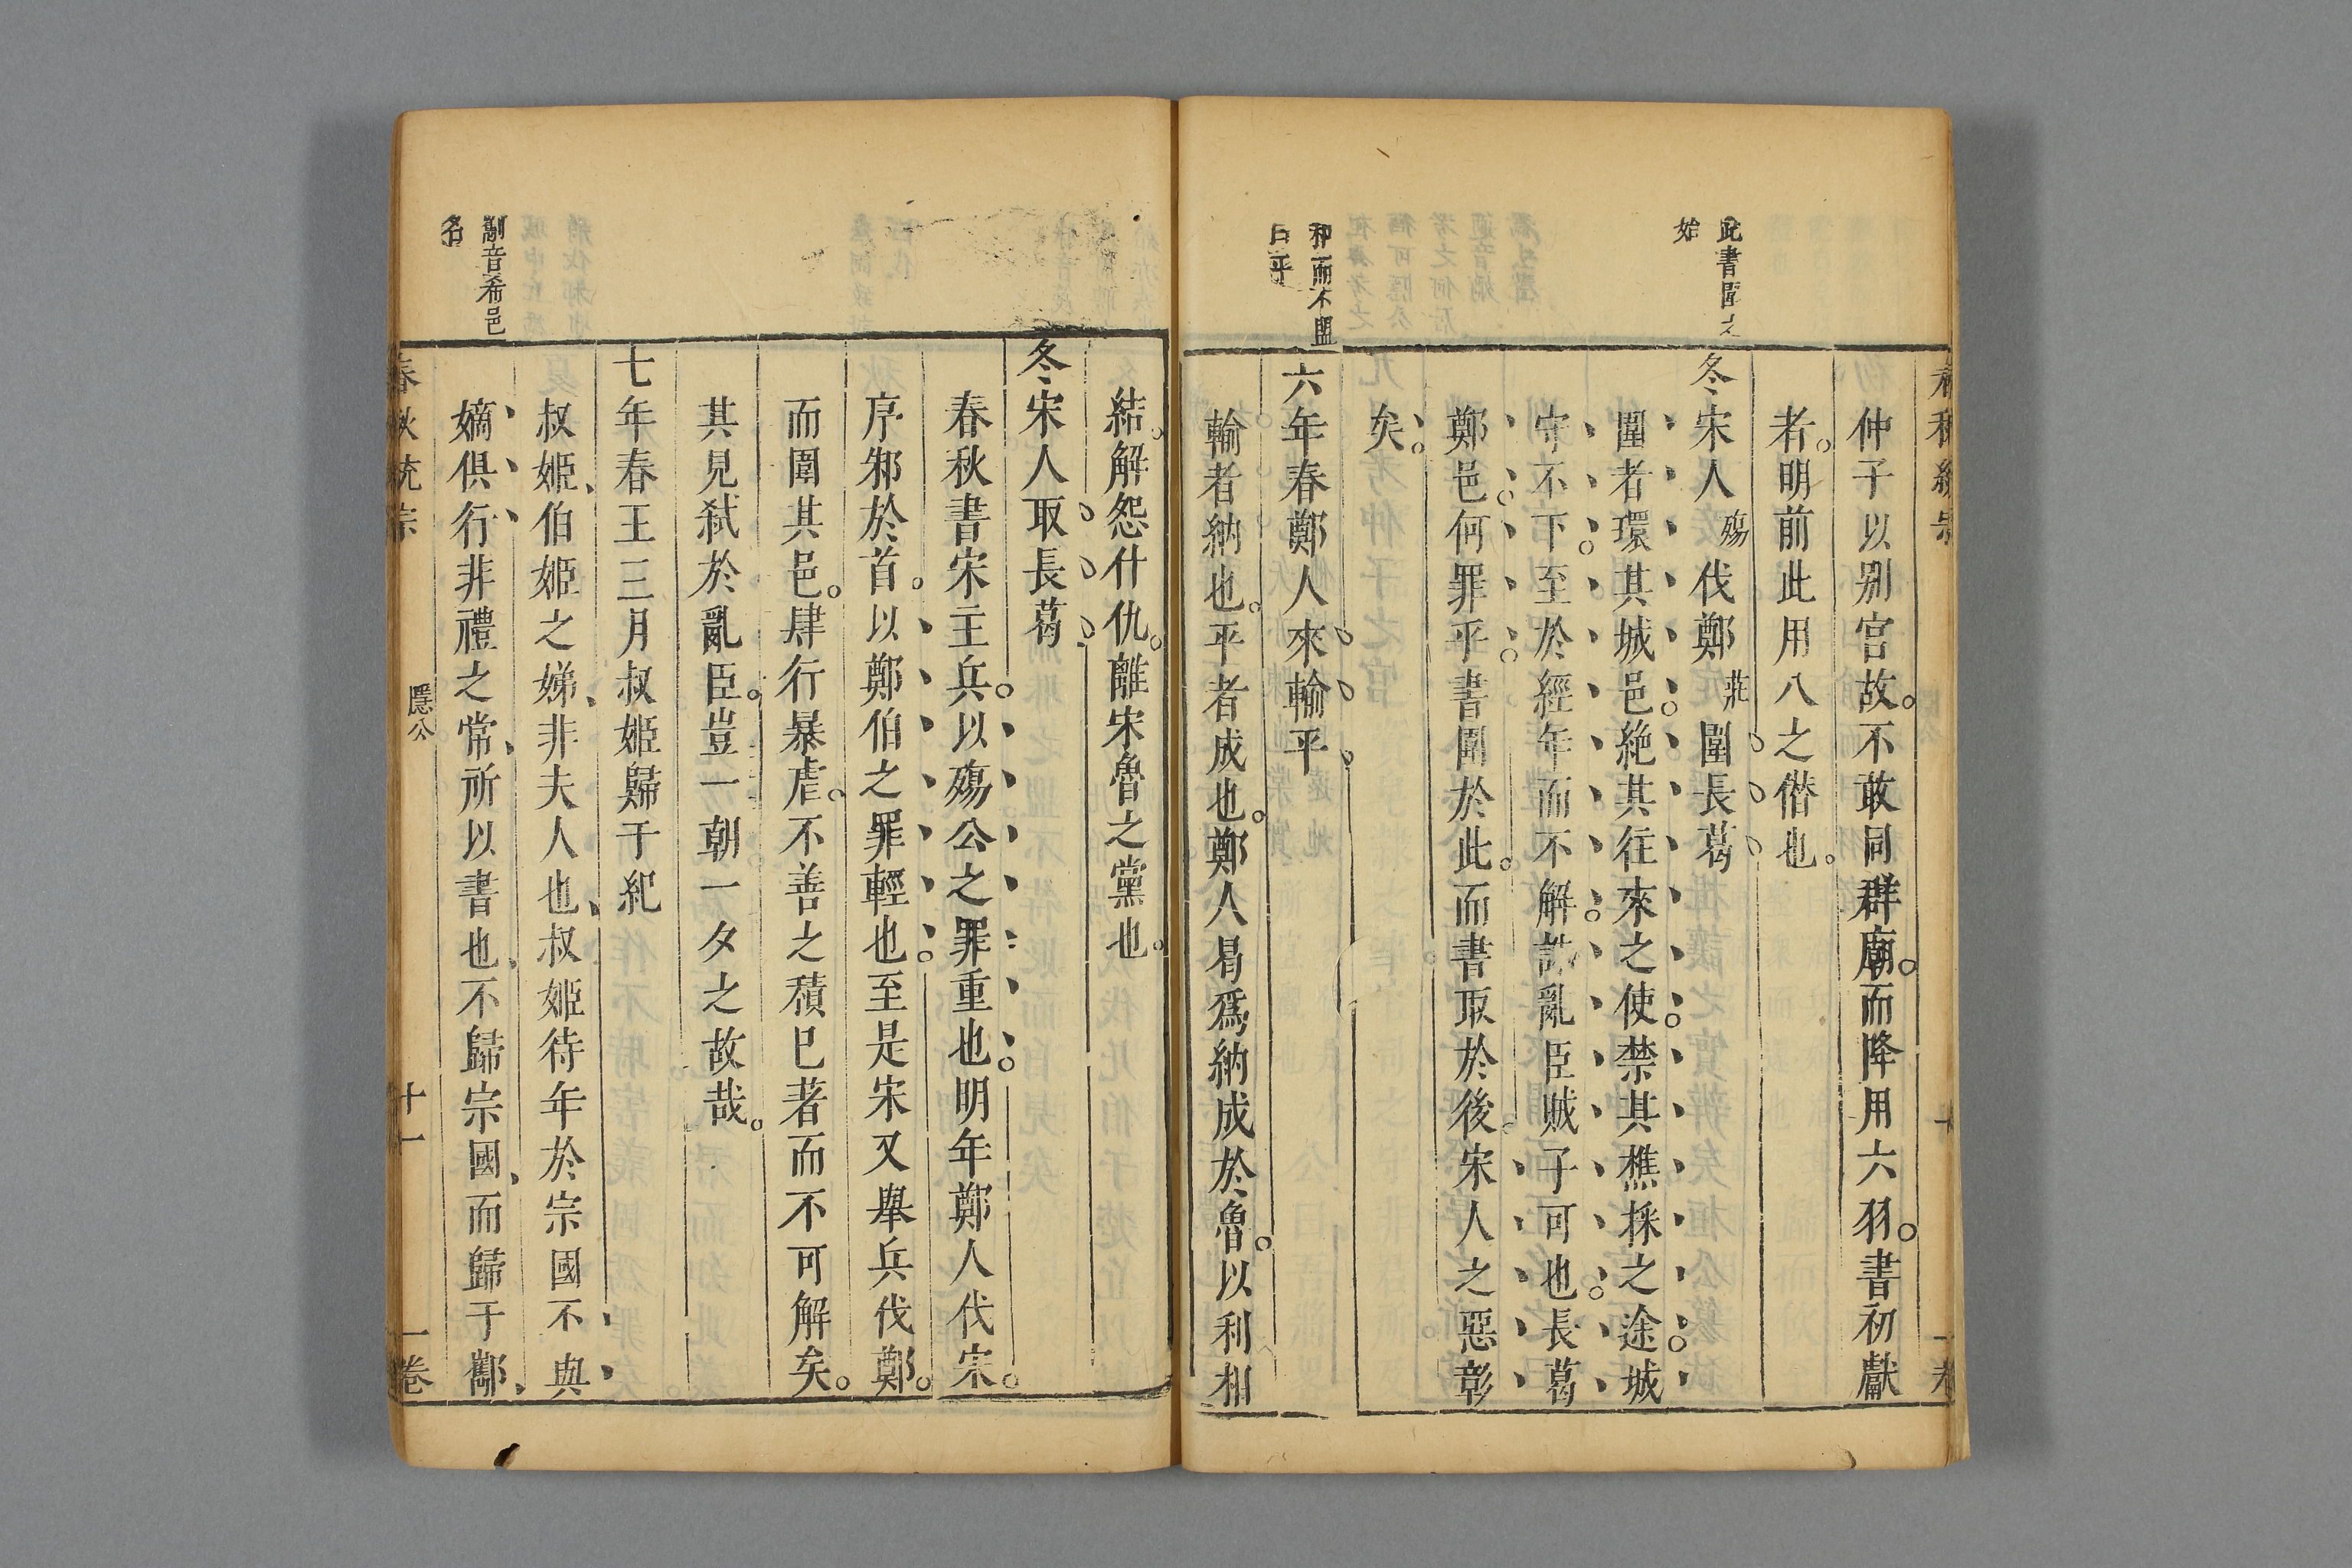 此書圍之
始
和而不盟
曰平
仲子以別宮故不敢同群廟而降用六羽書初獻
者明前此用八之僣也
冬宋人殤伐鄭莊圍長葛
圍者環其城邑絶其往來之使禁其樵採之途城
守不下至於經年而不解誅亂臣賊子可也長葛
鄭邑何罪乎書圍於此而書取於後宋人之惡彰
矣
六年春鄭人來輸平
輸者納也平者成也鄭人曷爲納成於魯以利相
酅音希邑
名
結解怨什仇離宋魯之黨也
冬宋人取長葛
春秋書宋主兵以殤公之罪重也明年鄭人伐宋
序邾於首以鄭伯之罪輕也至是宋又舉兵伐鄭
而圍其邑肆行暴虐不善之積已著而不可解矣
其見弑於亂臣豈一朝一夕之故哉
七年春王三月叔姬歸于紀
叔姬伯姬之娣非夫人也叔姬待年於宗國不與
嫡俱行非禮之常所以書也不歸宗國而歸于酅
春秋統宗 隱公 十一 一卷